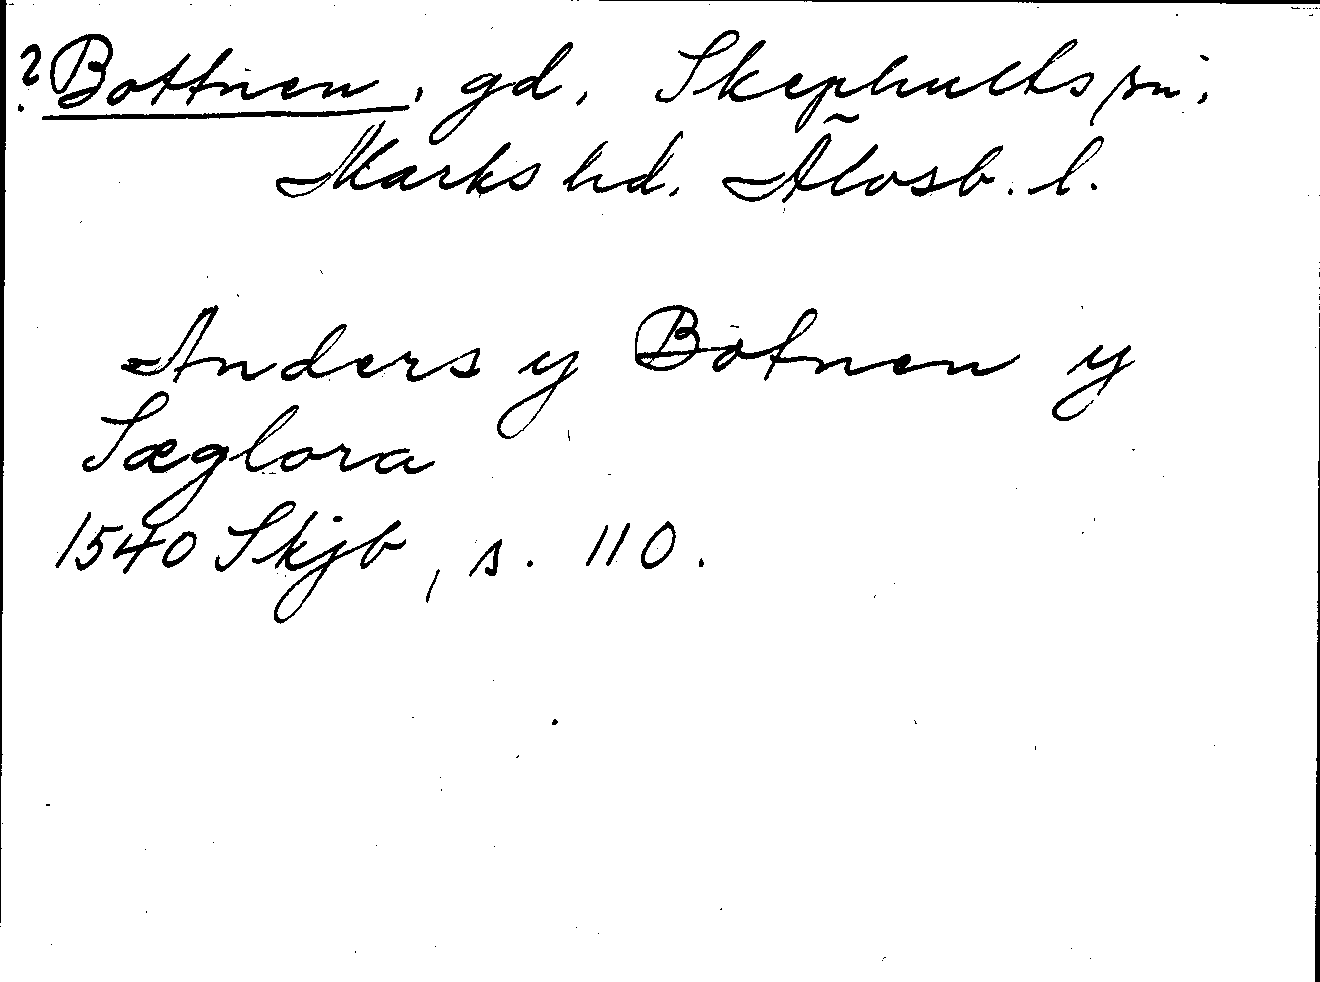 ? Bottnen, gd, Skephults sn,
Marks hd. Älvsb. l.
Anders y Botnen y
Sæglora
1540 Skjb, s. 110.